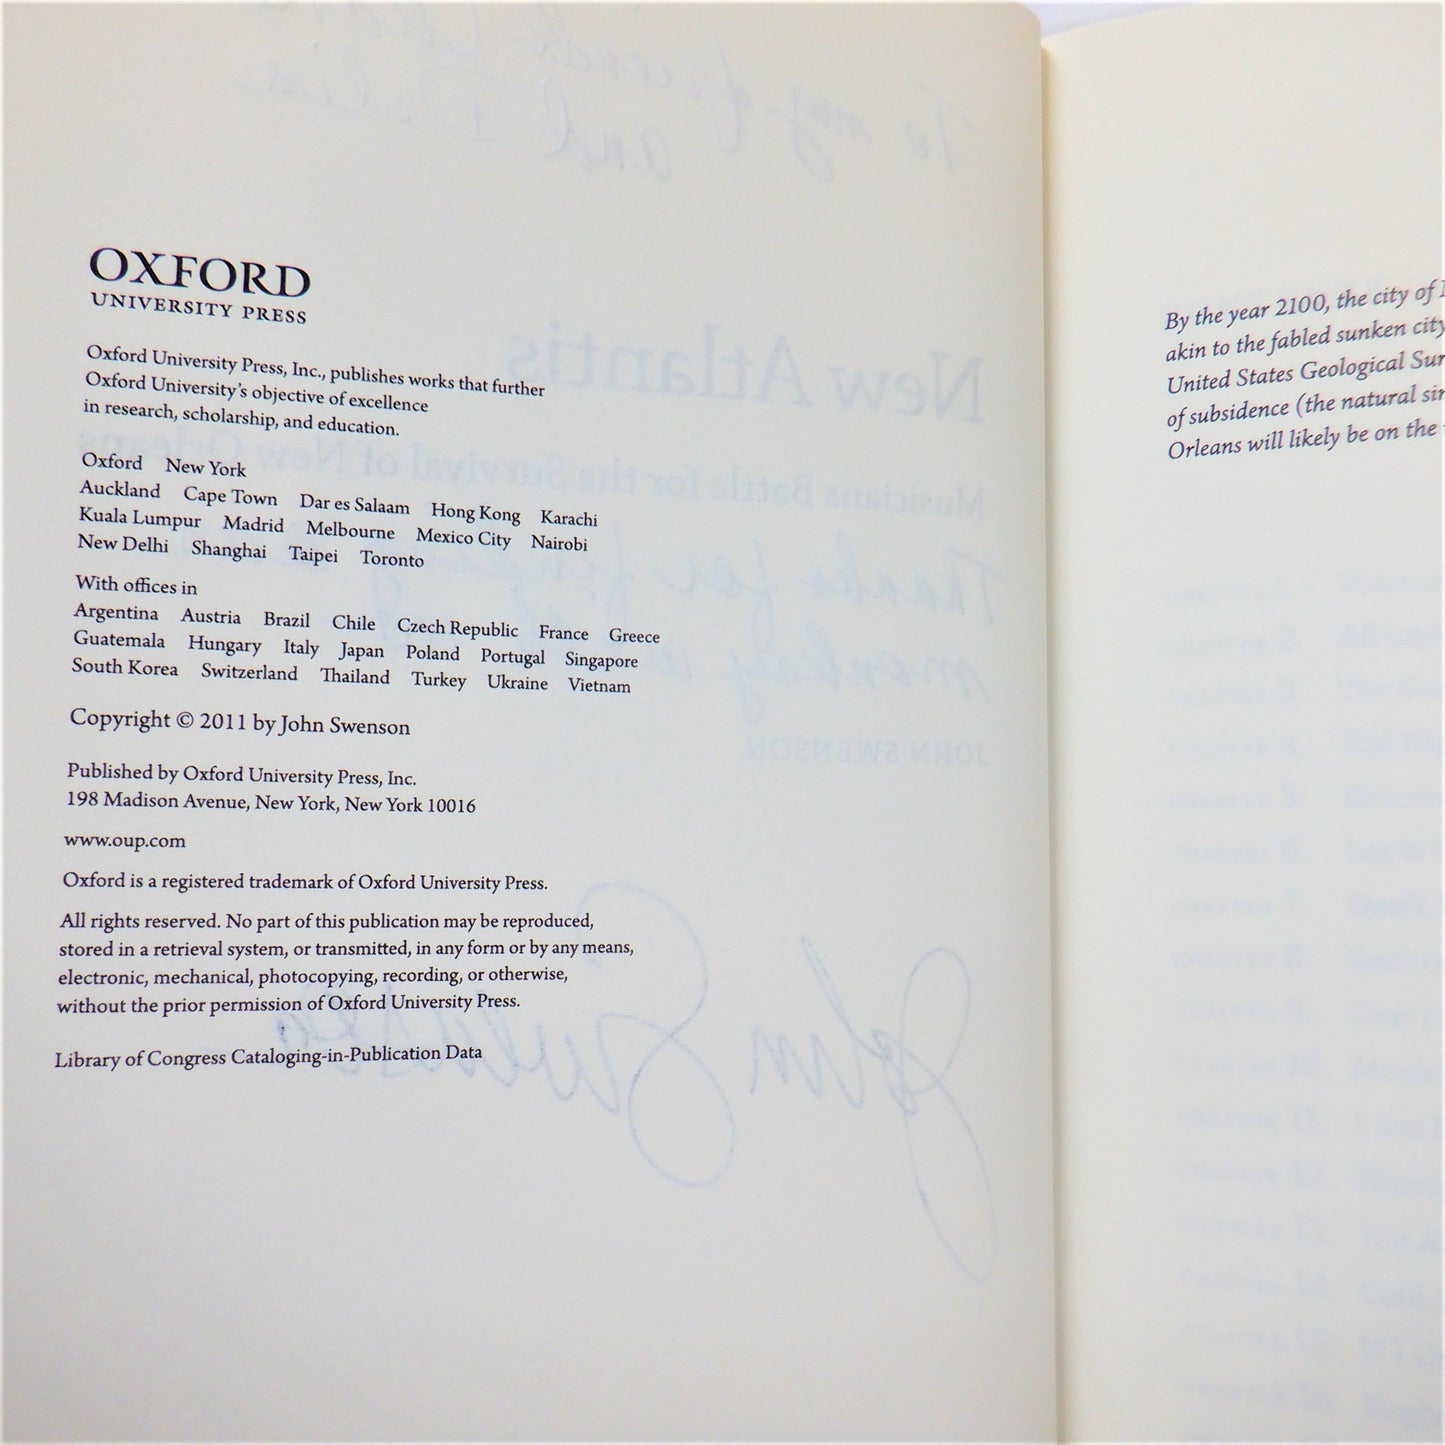 OXFORD
UNIVERSITY PRESS
Oxford University Press, Inc., publishes works that further
Oxford University's objective of excellence
in research, scholarship, and education.
Oxford New York
Auckland Cape Town Dar es Salaam Hong Kong Karachi
Kuala Lumpur Madrid Melbourne Mexico City Nairobi
New Delhi Shanghai Taipei Toronto
With offices in
Argentina Austria Brazil Chile Czech Republic France Greece
Guatemala Hungary Italy Japan Poland Portugal Singapore
South Korea Switzerland Thailand Turkey Ukraine Vietnam
Copyright © 2011 by John Swenson
Published by Oxford University Press, Inc.
198 Madison Avenue, New York, New York 10016
www.oup.com
Oxford is a registered trademark of Oxford University Press.
All rights reserved. No part of this publication may be reproduced,
stored in a retrieval system, or transmitted, in any form or by any means,
electronic, mechanical, photocopying, recording, or otherwise,
without the prior permission of Oxford University Press.
Library of Congress Cataloging-in-Publication Data
New Atlantis
Musicians Battle for the Survival of New Orleans
JOHN SWENSON
John Swenson
By the year 2100, the city of
akin to the fabled sunken city
United States Geological
of subsidence (the natural
Orleans will likely be on the